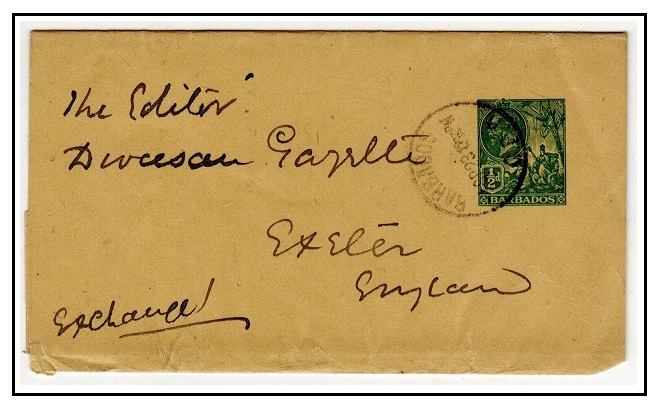 The Editor
Diocesan Gazette
Exeter
England
Exchange
½d
BARBADOS
BARBADOS